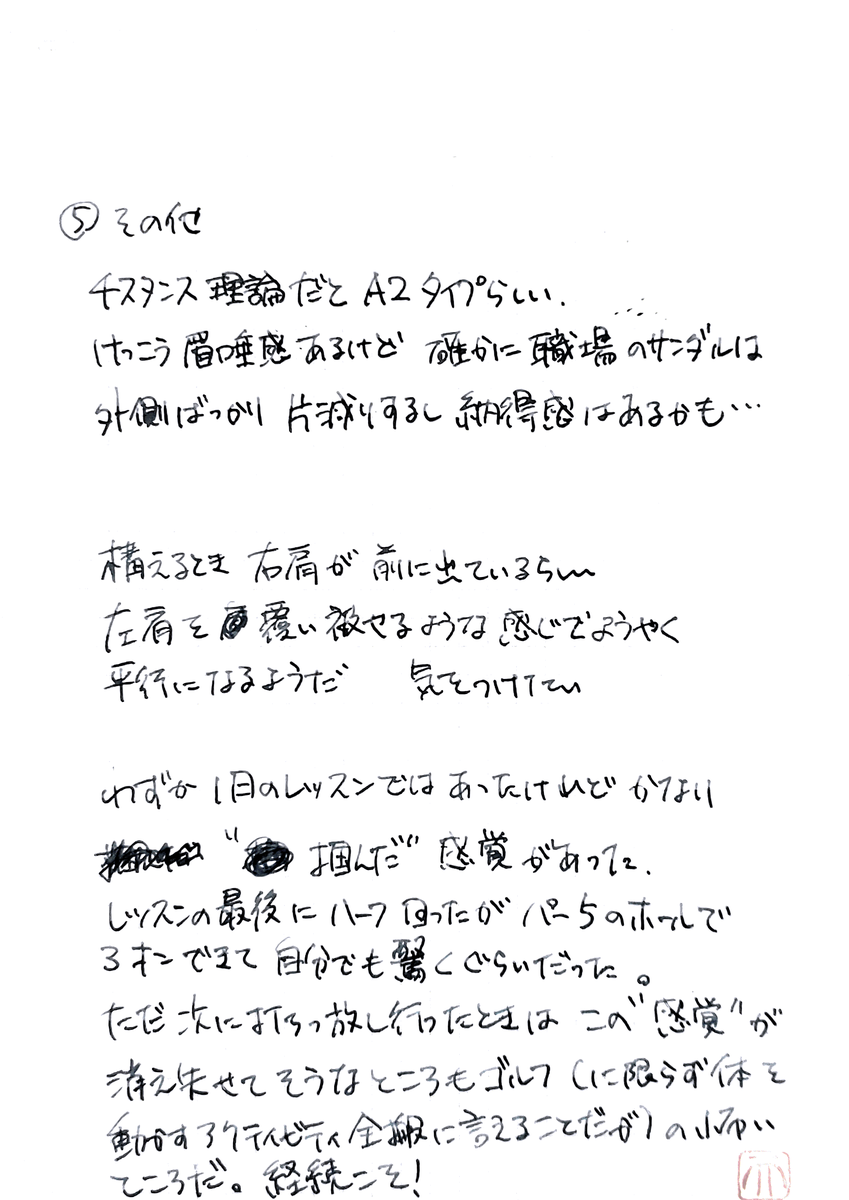 ⑤ その他
4スタンス理論だと A2タイプらしい.
けっこう眉唾感あるけど 確かに職場のサンダルは
外側ばっかり片減りするし 納得感はあるかも…
構えるとき 右肩が前に出ているらしい
左肩を覆い被せるような感じでようやく
平行になるようだ 気をつけてい
わずか1日のレッスンではあったけれど かなり
"掴んだ" 感覚があった.
レッスンの最後にハーフ回ったが パー5のホールで
3オンできて 自分でも驚くぐらいだった。
ただ次に打ちっ放し行ったときは この"感覚"が
消え失せてそうなところもゴルフ(に限らず体を
動かすアクティビティ全般に言えることだが)の怖い
ところだ。経続こそ!